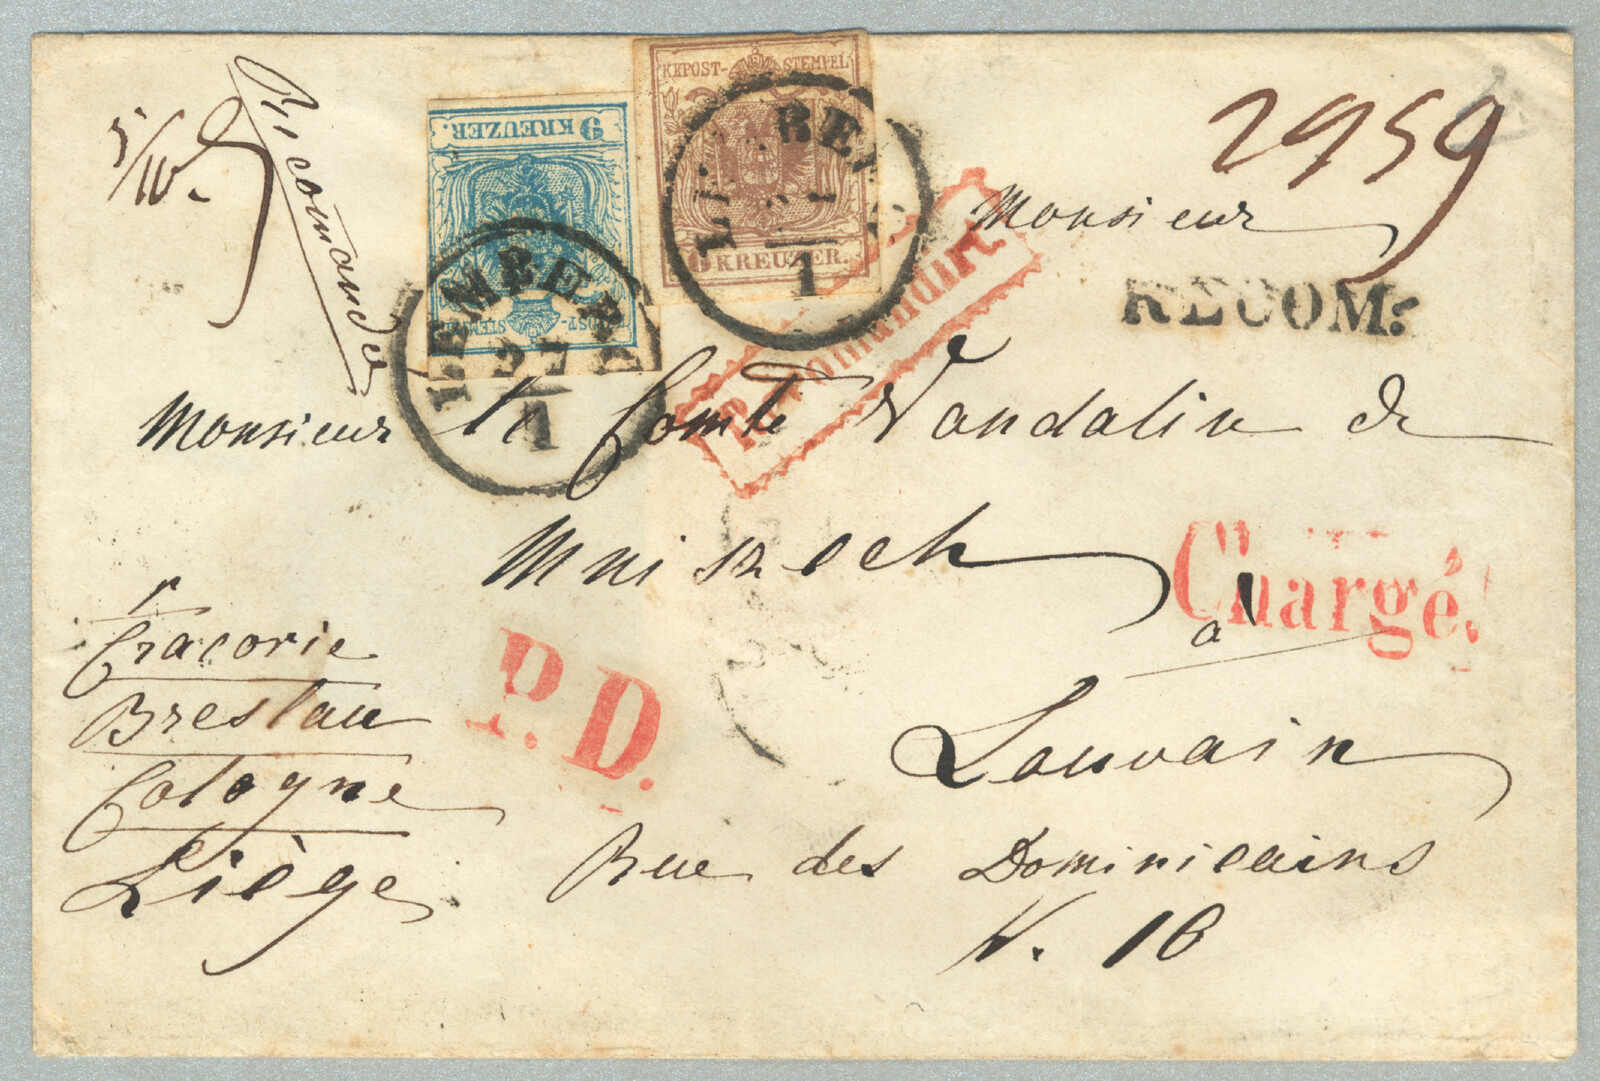 5/10.
Recomando
9 KREUZER.
KKPOST-STEMPEL
KKPOST-STEMPEL
6 KREUZER.
LEMBERG
27
1
LEMBERG
1
2959
Monsieur
RECOM:
Recomandirt
Monsieur le Comte Vandalin de
Mniszech
Chargé.
a
r
Cracovie
Breslau
Cologne
Liège
P.D.
Louvain
Rue des Dominicains
N. 16